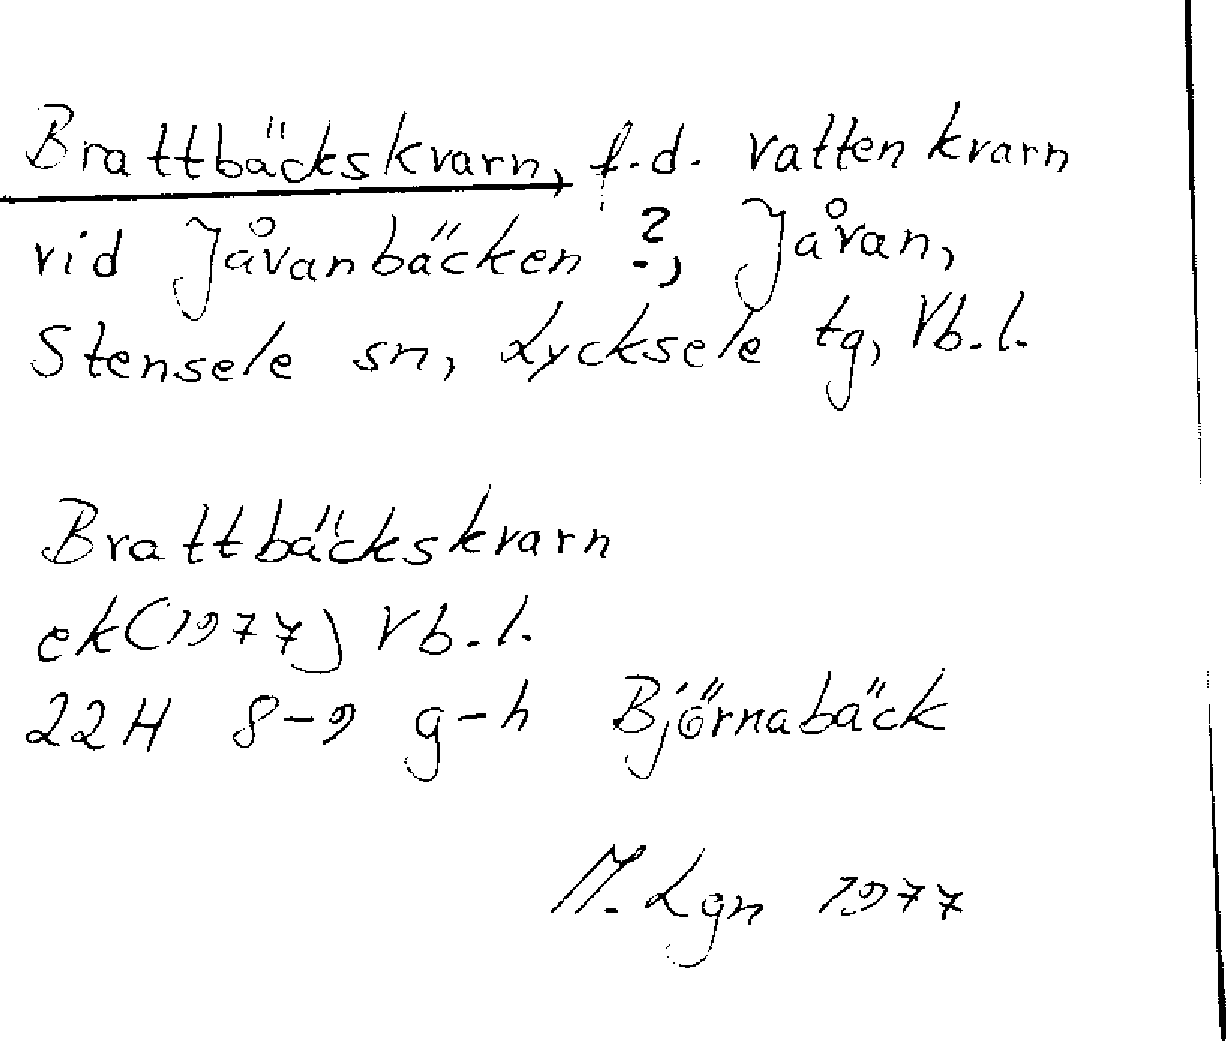 Brattbäckskvarn, f.d. vattenkvarn
vid Jåvanbäcken ?, Jåvan,
Stensele sn, Lycksele tg, Vb.l.
Brattbäckskvarn
ek(1977) Vb.l.
22H 8-9 g-h Björnabäck
M. Lgn 1977